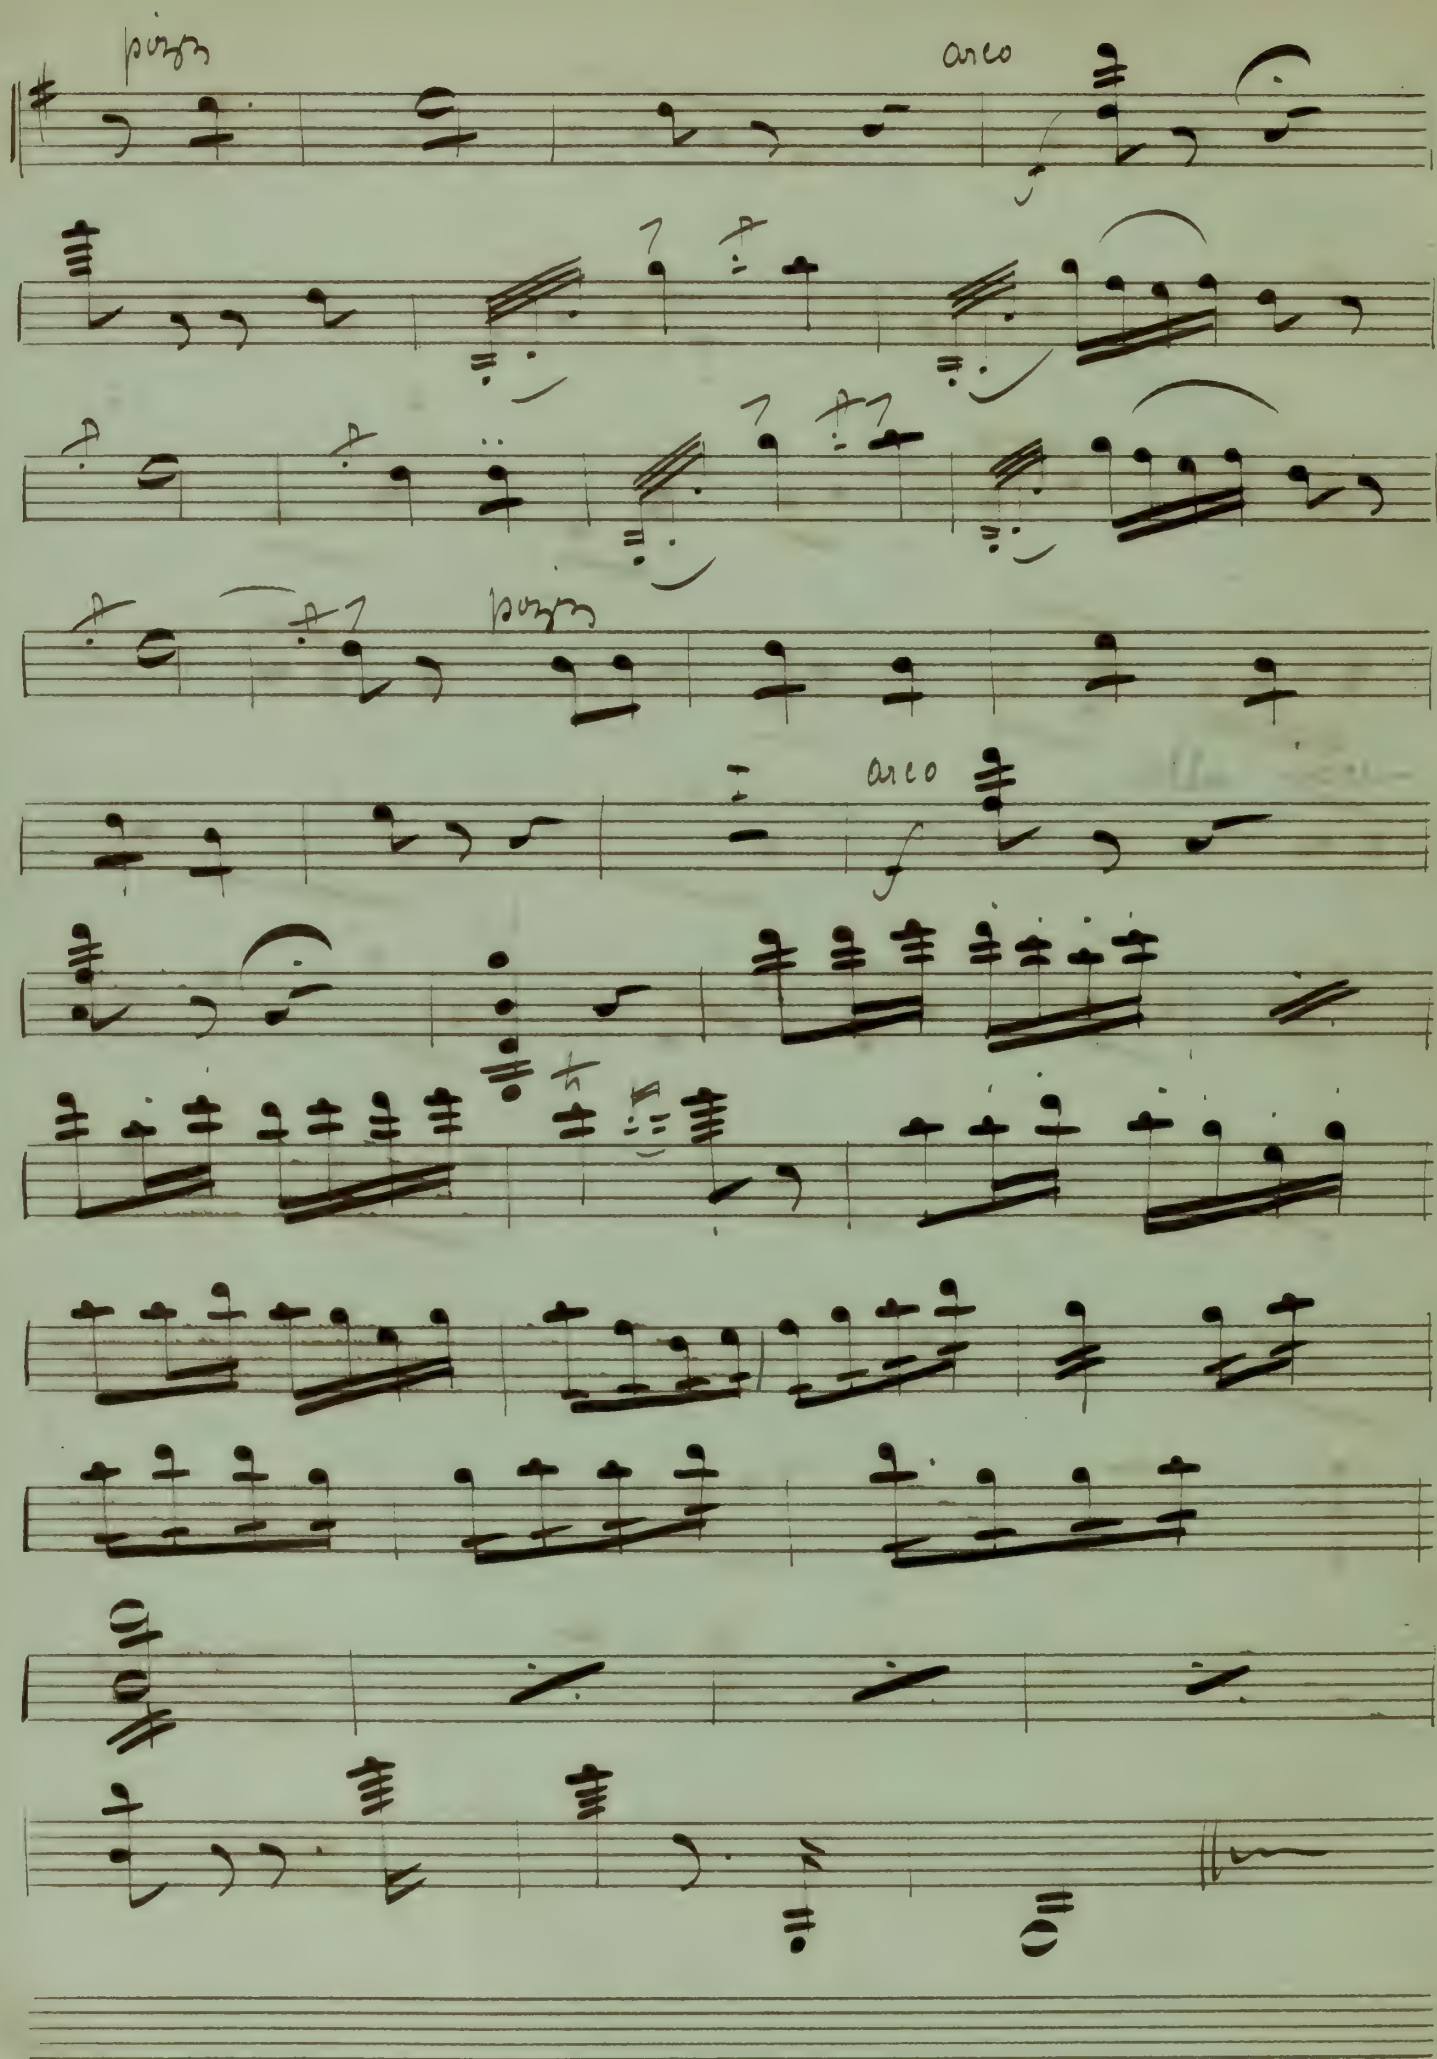 pizz arco
f
pizz
arco
f